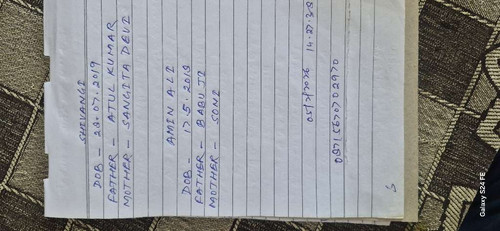 SHIVANGI
DOB - 29.07.2019
FATHER - ATUL KUMAR
MOTHER - SANGITA DEVI
AMIN ALI
DOB - 17.5.2018
FATHER - BABU JI
MOTHER - SONI
05/2/2026 14-27-
Galaxy S24 FE